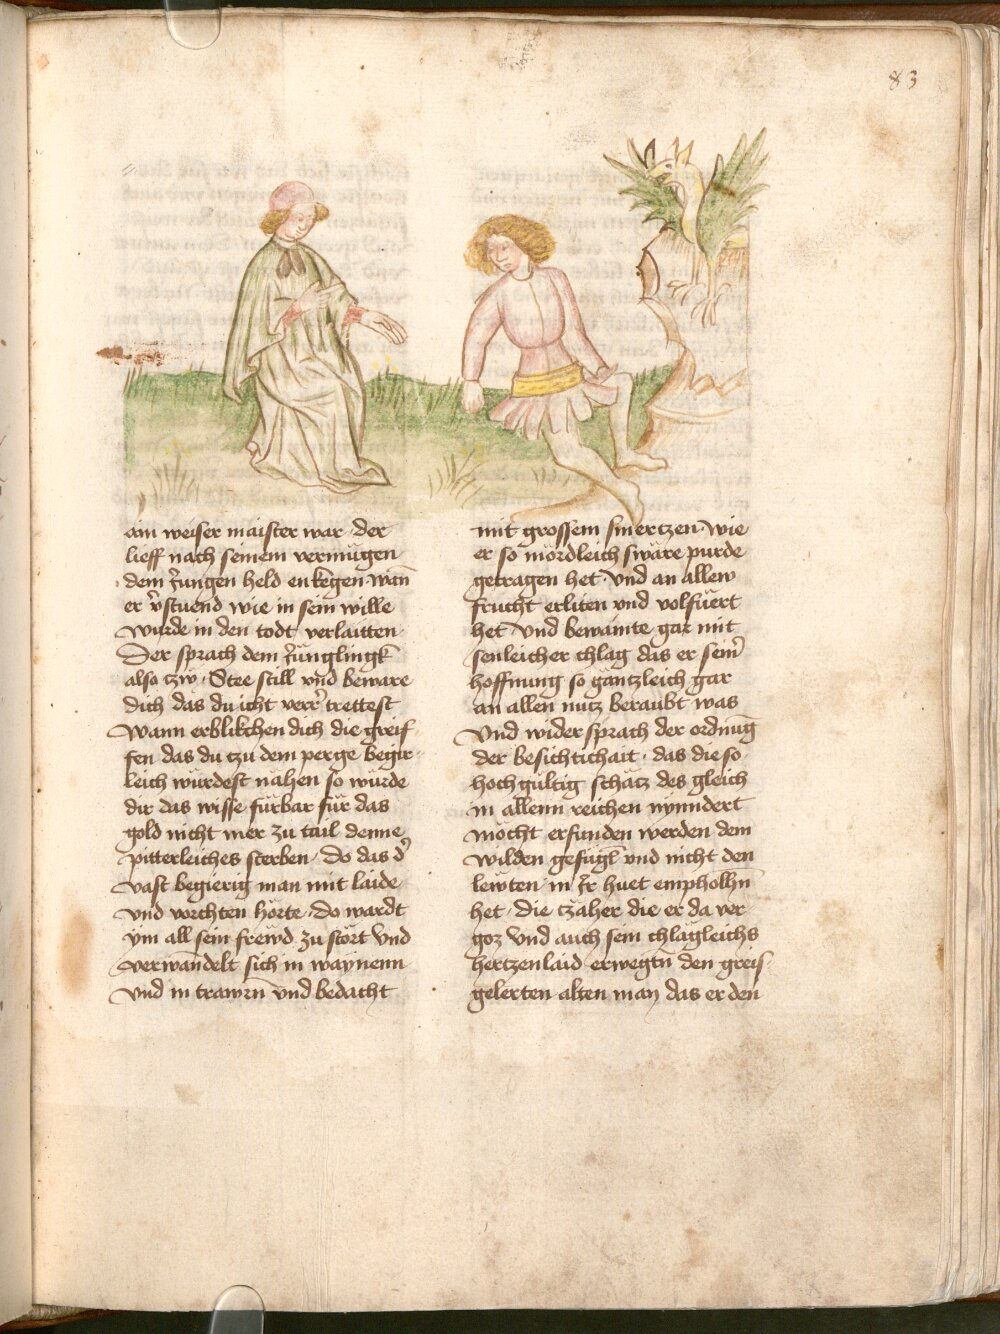 83
ain weiser maister war · der
lieff nach seinem vermügen
dem Jungen held enkegen wañ
er v̓stuend wie in sein wille
wurde in den todt verlaitten
Der sprach dem Jünglingk
also czw · Stee still vnd beware
dich das du icht verr trettest
wann erblikchen dich die greif
fen das du czu dem perge begir
leich würdest nahen so würde
dir das wisse fürbar für das
gold nicht mer zu tail denne
pitterleiches sterben · do das d̓
vast begierig man mit laide
vnd vorchten horte · do wardt
ym all sein frewd zu stört Vnd
verwandelt sich in waynenn
vnd in trawrn̄ vnd bedacht
mit grossem smertzen · wie
er so mördleich swäre purde
getragen het · vnd an allew
frucht erliten vnd volfüert
het · vnd bewainte gar mit
senleicher chlag das er sein̓
hoffnung so gäntzleich gar
an allen nutz beraubt was
Vnd wider sprach der ordnūg
der besichtichait · das die so
hochgültig schätz des gleich
in allenn reichen nynndert
möcht erfunden werden dem
wilden gefügl vnd nicht den
lewten in Jr huet empholhn̄
het · die czäher die er da ver
goz Vnd auch sein chlägleichs
hertzenlaid erwegtn̄ den greis
gelerten alten man das er den